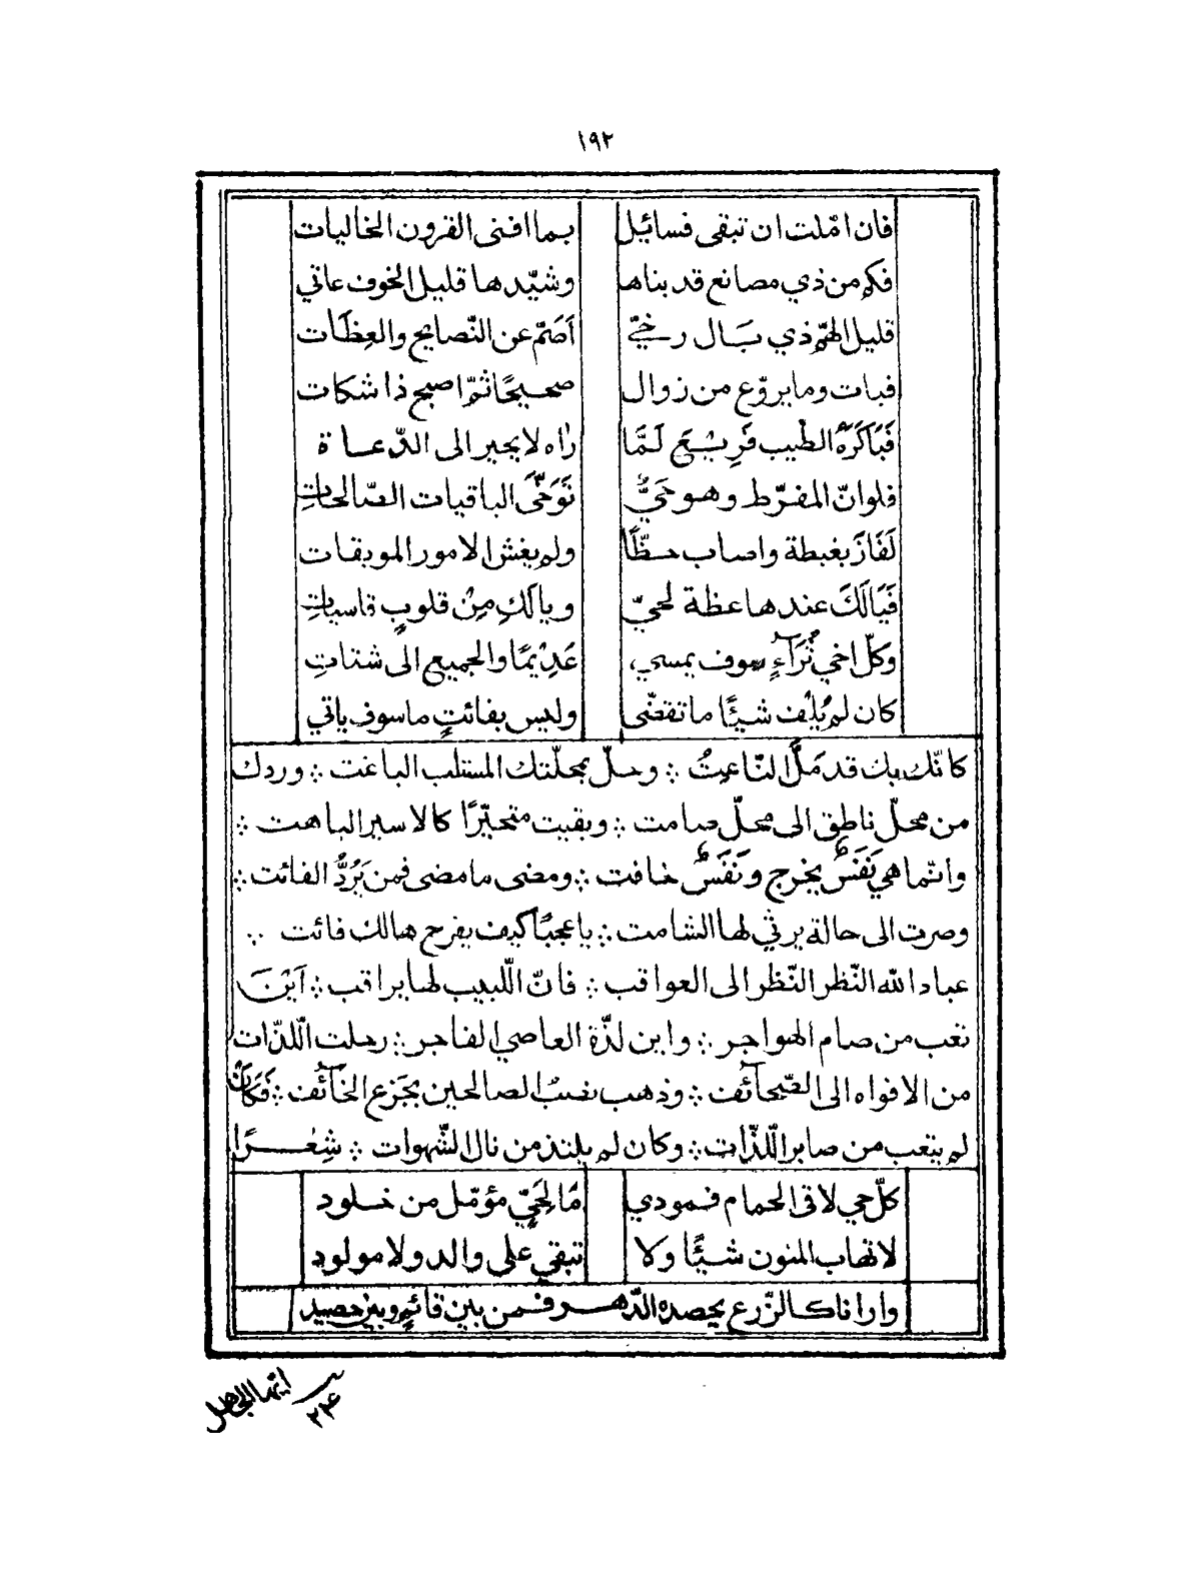 ١٩٢
فان امّلت ان تبقى فسائيل بما افنى القرون الخاليات
فكم من ذي مصانع قد بناها وشيّدها قليل الخوف عاتي
قليل الهمّ ذي بَال رخيّ أصَمّ عن النّصايح والعِظَات
فبات وما يروّع من زوال صحيحًا ثمّ اصبح ذا شكات
فَبَاكَرَهُ الطبيب فَرِيْعَ لَمَّا رٰاه لا يجير الى الدّعاة
فلوانّ المفرّط وهو حَيٌّ تَوَخّىَ الباقيات الصّالحاتِ
لَفَازَ بغبطة واصاب حظًّا ولم يغش الامور الموبقات
فَيَالَكَ عندها عظة لحيّ ويالكِ مِنْ قلوبٍ قاسياتِ
وكلّ اخي ثُرَآءٍ سوف يمسي عَدِيْمًا والجميع الى شتاتِ
كان لم يُلْف شيئًا ما تقضّى وليس بفائتٍ ما سوف ياتي
كانّك بك قد مَلَّ النّاعِتُ ∴ وحلّ بمحلّتك المستلب الباغت ∴ وردك
من محلّ ناطق الى محلّ صامت ∴ وبقيت متحيّرًا كالاسير الباهت ∴
وانّما هي نَفَسٌ يخرج ونَفَسٌ خافت ∴ ومضى ما مضى فمن يَرُدُّ الفائت ∴
وصرت الى حالة يرثي لها الشامت ∴ يا عجبًا كيف يفرح هالك فائت ∴
عباد الله النّظر النّظر الى العواقب ∴ فانّ اللّبيب لها يراقب ∴ اَيْنَ
تعب من صام الهواجر ∴ واين لذّة العاصي الفاجر ∴ رحلت اللّذّات
من الافواه الى الصّحآئف ∴ وذهب نصبُ الصالحين بجَزع الخآئف ∴ فَكَانْ
لم يتعب من صابر اللّذّات ∴ وكان لم يلتذ من نال الشّهوات ∴ شِعْرًا
كلّ حي لاقى الحمام فمودي مَا لِحَيٍّ مؤمّل من خلود
لا تهاب المنون شيئًا ولا تبقي على والد ولا مولود
وارانا كالزّرع يحصده الدّهر فمن بين قائمٍ وبين حصيد
ايّها الجاهل
٢٤